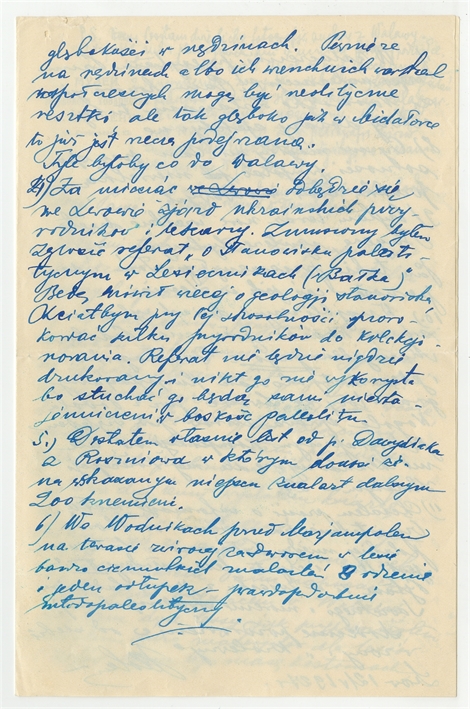 głębokości w rędzinach. Pewnie że
na rędzinach albo ich wierzchnich warstwach
współczesnych mogą być neolityczne
resztki ale tak głęboko już w
to już jest rzecz przegrana.
Tyle byłoby co do Dalawy.
4) Za miesiąc we Lwowie odbędzie się
we Lwowie zjazd ukraińskich przy-
rodników i lekarzy. Zmuszony byłem
zgłosić referat „o stanowisku paleoli-
tycznym w Lesienicach (Batka)"
Będę mówił więcej o geologji stanowiska
Chciałbym przy tej sposobności sprowo-
kować kilku przyrodników do kolekcjo-
nowania. Referat nie będzie nigdzie
drukowany, i nikt go nie wykorzysta
bo słuchać go będą sami niewta-
jemniczeni w boskość paleolitu.
5.) Dostałem właśnie list od p. Dawydiaka
z Roszniowa w którym donosi że
na wskazanym miejscu znalazł dalszych
200 krzemieni.
6) We Wodnikach przed Marjampolem
na terasie za dworem w lesie
bardzo znalazłem 3 rdzenie
i jeden odłupek – prawdopodobnie
młodopaleolityczny